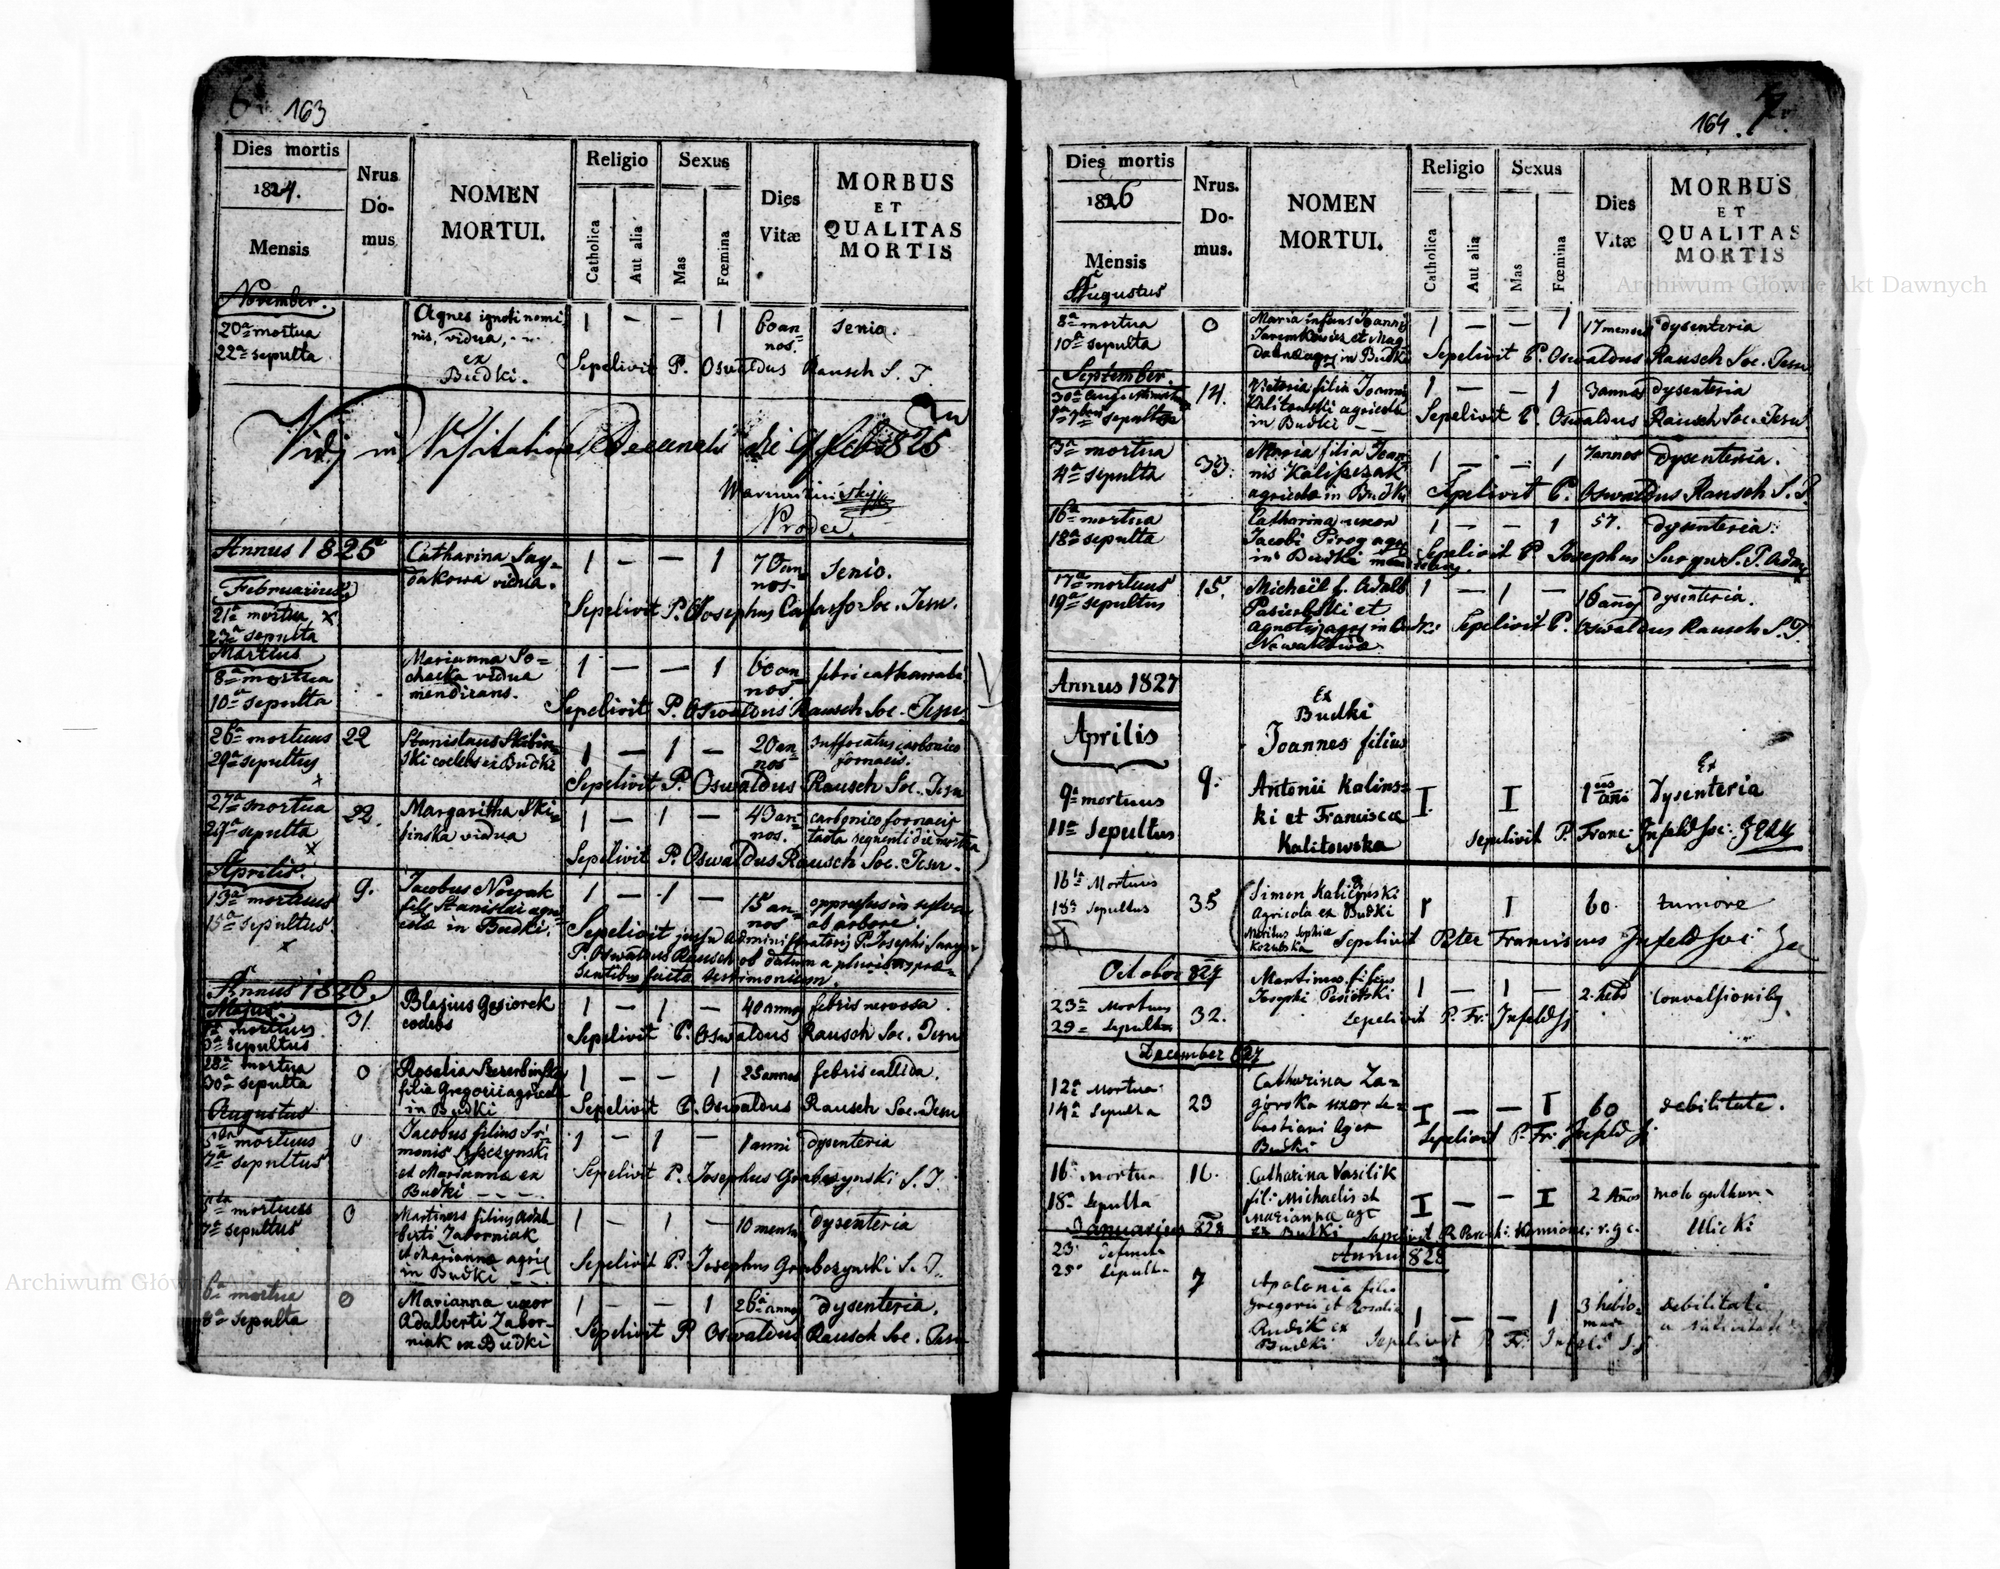 163
Dies mortis
1824.
Mensis
Nrus
Do-
mus
NOMEN
MORTUI.
Religio
Catholica
Aut alia
Sexus
Mas
Fœmina
Dies
Vitæ
MORBUS
ET
QUALITAS
MORTIS
November.
20a mortua
22a sepulta
Agnes ignoti nomi
nis, vidua,
ex
Budki.
1 — — 1
60 an
nos.
senio.
Sepelivit P. Oswaldus Rausch S. J.
Vidj in Visitatione Decanali die 9 feb 1825
Annus 1825
Februarius
21a mortua x
23a sepulta
Catharina Say=
dakowa vidua.
1 — — 1
70 an
nos.
senio.
Sepelivit P. Josephus Cafasso Soc. Jesu.
Martius
8a mortua
10a sepulta
Marianna So=
chacka vidua
mendicans.
1 — — 1
60 an
nos.
febri catharrali
Sepelivit P. Oswaldus Rausch Soc. Jesu
26a mortuus
29a sepultus
x
22
Stanislaus Skibin=
ski coelebs ex Budki
1 — 1 —
20 an
nos
suffocatus carbonico
fornacis.
Sepelivit P. Oswaldus Rausch Soc. Jesu
27a mortua
29a sepulta
x
22.
Margaritha Ski
binska vidua
1 — 1 —
43 an
nos.
carbonico fornacis
tacta sequenti die mortua
Sepelivit P. Oswaldus Rausch Soc. Jesu.
Aprilis.
13a mortuus
15a sepultus
x
9.
Jacobus Nowak
fil. Stanislai agri
colae in Budki.
1 — 1 —
15 an
nos
oppressus in sylva
ab arbore
Sepelivit jussu administratoris P. Josephi
P. Oswaldus Rausch ob datum a pluribus prae=
sentibus facto testimonium.
Annus 1826.
Majus
mortuus
sepultus
31.
Blasius Gesiorek
coelebs
1 — 1 —
40 annos
febris nervosa
Sepelivit P. Oswaldus Rausch Soc. Jesu
28a mortua
30a sepulta
0
Rosalia
filia Gregorii agricolae
in Budki
1 — — 1
25 annos
febris callida.
Sepelivit P. Oswaldus Rausch Soc. Jesu
Augustus
5ta mortuus
7a sepultus
0
Jacobus filius Si
monis
et Marianna ex
Budki
1 — 1 —
1 anni
dysenteria
Sepelivit P. Josephus Grabczynski S. J.
5ta mortuus
7a sepultus
0
Martinus filius Adal
berti Zaborniak
et Marianna agric
in Budki
1 — 1 —
10 mens
dysenteria
Sepelivit P. Josephus Grabczynski S. J.
6a mortua
8a sepulta
0
Marianna uxor
Adalberti Zabor=
niak in Budki
1 — — 1
26 annos
dysenteria.
Sepelivit P. Oswaldus Rausch Soc. Jesu
164.
7.
Dies mortis
1826
Mensis
Nrus.
Do-
mus.
NOMEN
MORTUI.
Religio
Catholica
Aut alia
Sexus
Mas
Fœmina
Dies
Vitæ
MORBUS
ET
QUALITAS
MORTIS
Augustus
8a mortua
10a sepulta
0
Maria infans Joannis
et Mag
dalenae agr. in Budki
1 — — 1
17 menses
dysenteria
Sepelivit P. Oswaldus Rausch Soc. Jesu
September.
sepulta
14.
Victoria filia Joannis
Kalitowski agricolae
in Budki
1 — — 1
3 annos
dysenteria
Sepelivit P. Oswaldus Rausch Soc. Jesu
3a mortua
4a sepulta
33.
Maria filia Joan
nis
agricolae in Budki
1 — — 1
7 annos
dysenteria.
Sepelivit P. Oswaldus Rausch S. J.
16a mortua
18a sepulta
Catharina uxor
Jacobi Pirog agr
in Budki
1 — — 1
57.
dysenteria.
Sepelivit P. Josephus S. J. Adm
17a mortuus
19a sepultus
15.
Michaël f. Adalb
et
Agnetis agr. in Budki
1 — 1 —
16 annos
dysenteria.
Sepelivit P. Oswaldus Rausch S. J.
Annus 1827
Aprilis
9a mortuus
11a Sepultus
9.
Ex
Budki
Joannes filius
Antonii Kalins=
ki et Francisca
Kalitowska
I I
1 anni
Ex
Dysenteria
Sepelivit P. Franc: Infeld Soc: Jesu
16ta Mortuus
18a Sepultus
35
Simon
Agricola ex Budki
Maritus Sophia
1 I
60.
tumore
Sepelivit Pater Franciscus Infeld Soc:
October 827
23a Mortuus
29a Sepultus
32.
Martinus filius
Josephi
1 — 1 —
2. hebd
Convulsionibg
Sepelivit P. Fr: Infeld Sj
December 827
12a Mortua
14a Sepulta
23
Catharina Za=
górska uxor Se=
bastiani Agr ex
Budki
I — — I
60
debilitate.
Sepelivit P. Fr. Infeld Sj
16a mortua
18a Sepulta
16.
Catharina Vasilik
fil. Michaelis et
Marianna agr
ex Budki
I — — I
2 Anos
Januarius 828
Annus 828
23. defuncta
25a Sepulta
7
Apolonia filia
Gregorii et Rosalia
Rudik ex
Budki
1 — — 1
3 hebdo=
mad
debilitate
a nativitate
Sepelivit P. Fr. Infeld S. j.
Archiwum Główne Akt Dawnych
Archiwum Główne Akt Dawnych